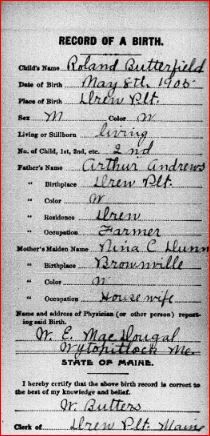 RECORD OF A BIRTH.
Child's Name Roland Butterfield
Date of Birth May 8th, 1905
Place of Birth Drew Plt.
Sex M Color W
Living or Stillborn living
No. of Child, 1st, 2nd, etc. 2nd
Father's Name Arthur Andrews
" Birthplace Drew Plt.
" Color W
" Residence Drew
" Occupation Farmer
Mother's Maiden Name Nina C Dunn
" Birthplace Brownville
" Color W
" Occupation Housewife
Name and address of Physician (or other person) report-
ing said Birth.
W. E. MacDougal
Wytopitlock Me.
STATE OF MAINE.
I hereby certify that the above birth record is correct to
the best of my knowledge and belief.
W. Butters
Clerk of Drew Plt. Maine